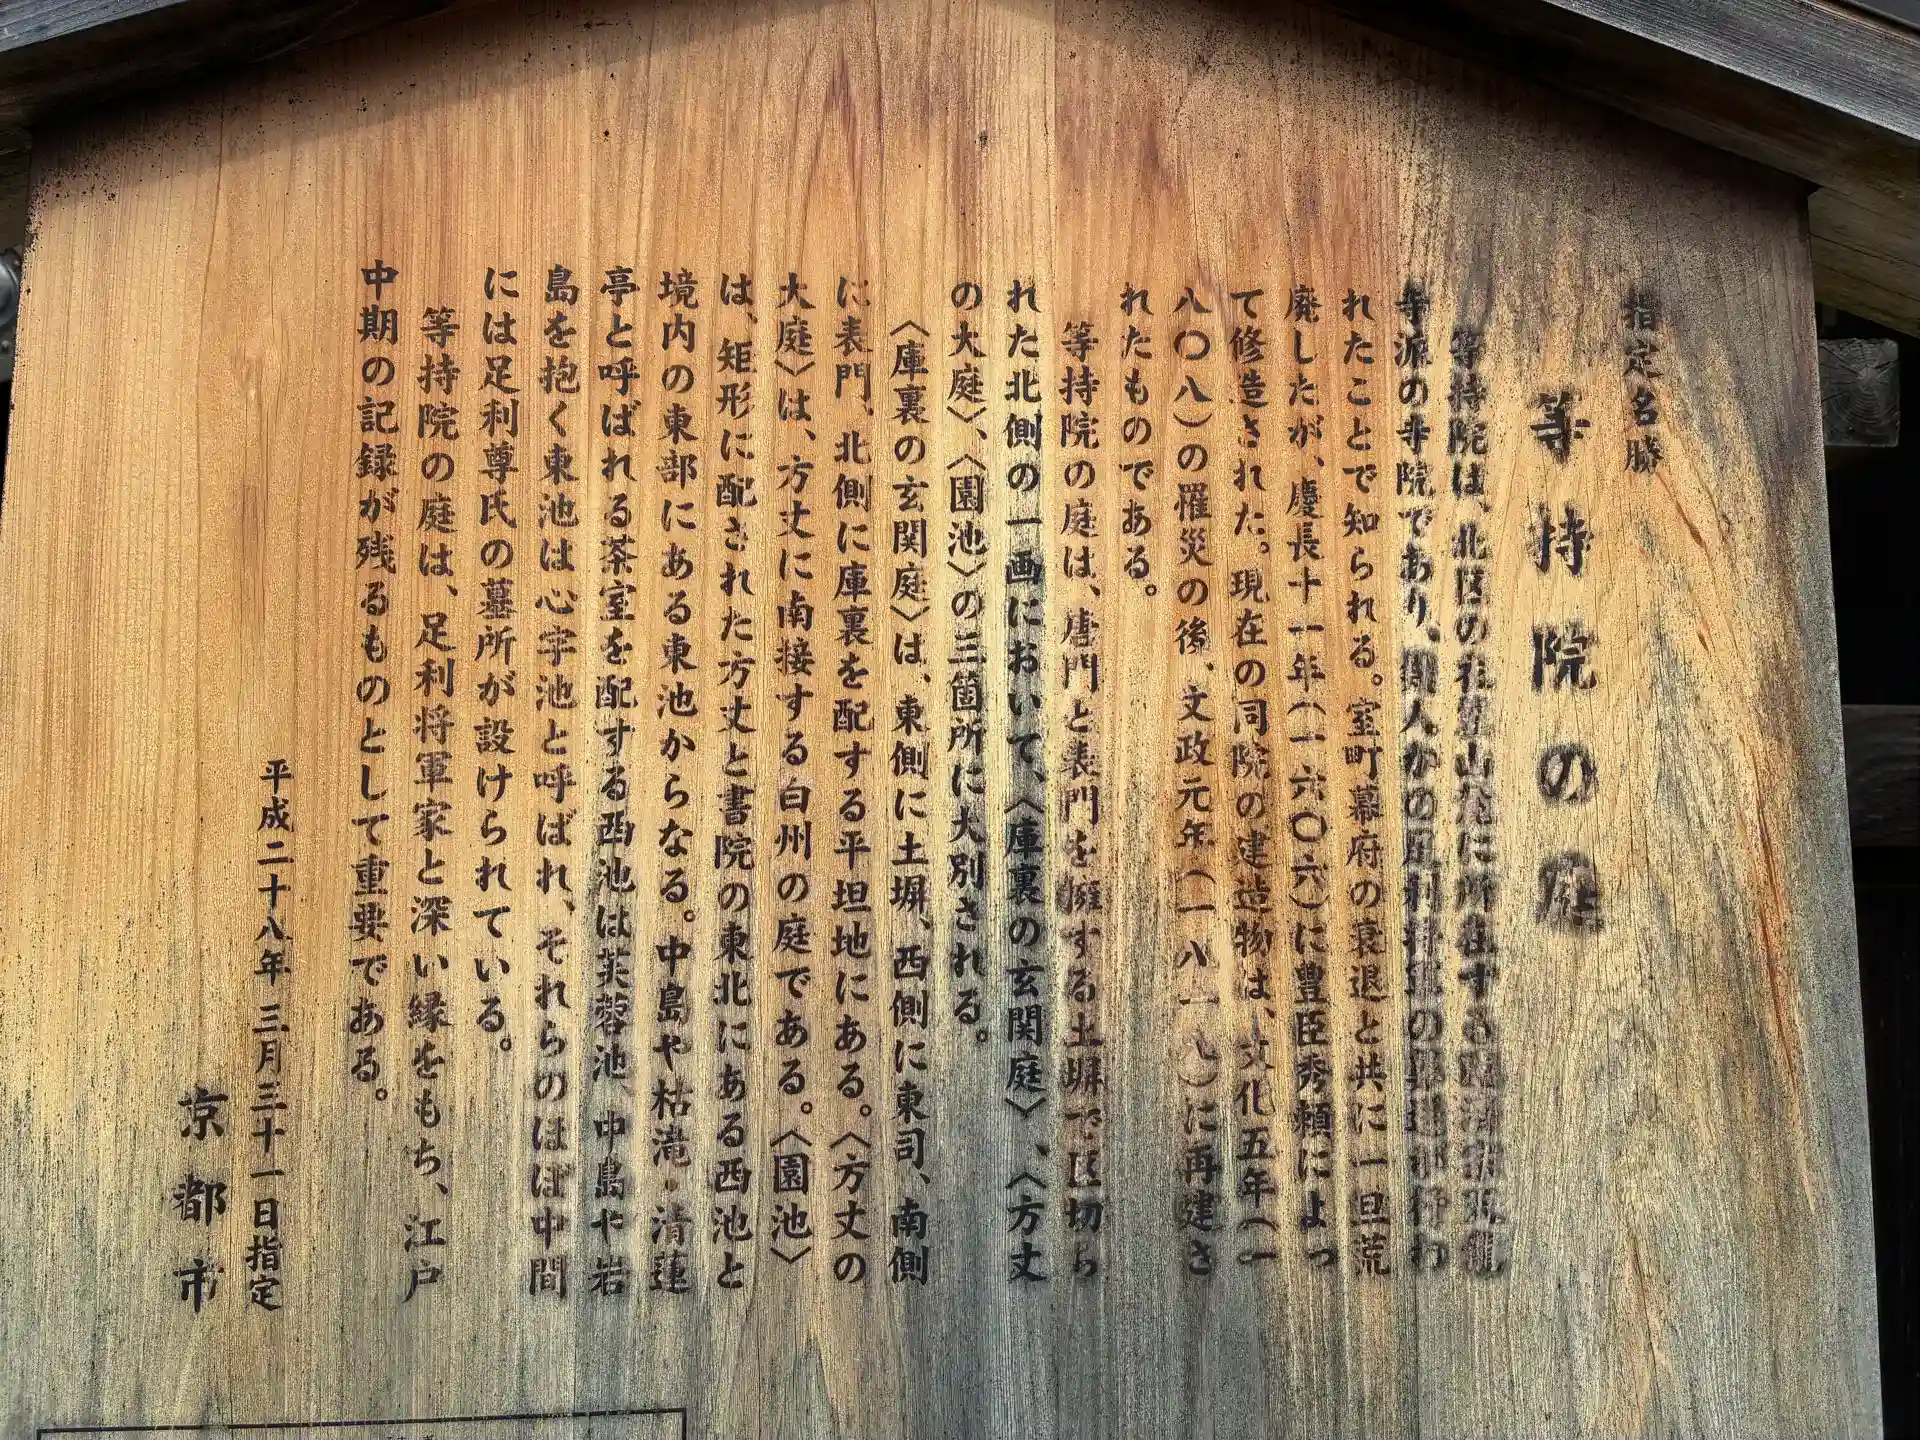 指定名勝
等持院の庭
等持院は、北区の衣笠山麓に所在する臨済宗天龍
寺派の寺院であり、開人かの足利将軍の葬送が行わ
れたことで知られる。室町幕府の衰退と共に一旦荒
廃したが、慶長十一年(一六〇六)に豊臣秀頼によっ
て修造された。現在の同院の建造物は、文化五年(一
八〇八)の罹災の後、文政元年(一八一八)に再建さ
れたものである。
等持院の庭は、唐門と表門を擁する土塀で区切ら
れた北側の一画において、〈庫裏の玄関庭〉、〈方丈
の大庭〉、〈園池〉の三箇所に大別される。
〈庫裏の玄関庭〉は、東側に土塀、西側に東司、南側
に表門、北側に庫裏を配する平坦地にある。〈方丈の
大庭〉は、方丈に南接する白州の庭である。〈園池〉
は、矩形に配された方丈と書院の東北にある西池と
境内の東部にある東池からなる。中島や枯滝・清蓮
亭と呼ばれる茶室を配する西池は芙蓉池、中島や岩
島を抱く東池は心字池と呼ばれ、それらのほぼ中間
には足利尊氏の墓所が設けられている。
等持院の庭は、足利将軍家と深い縁をもち、江戸
中期の記録が残るものとして重要である。
平成二十八年三月三十一日指定
京都市